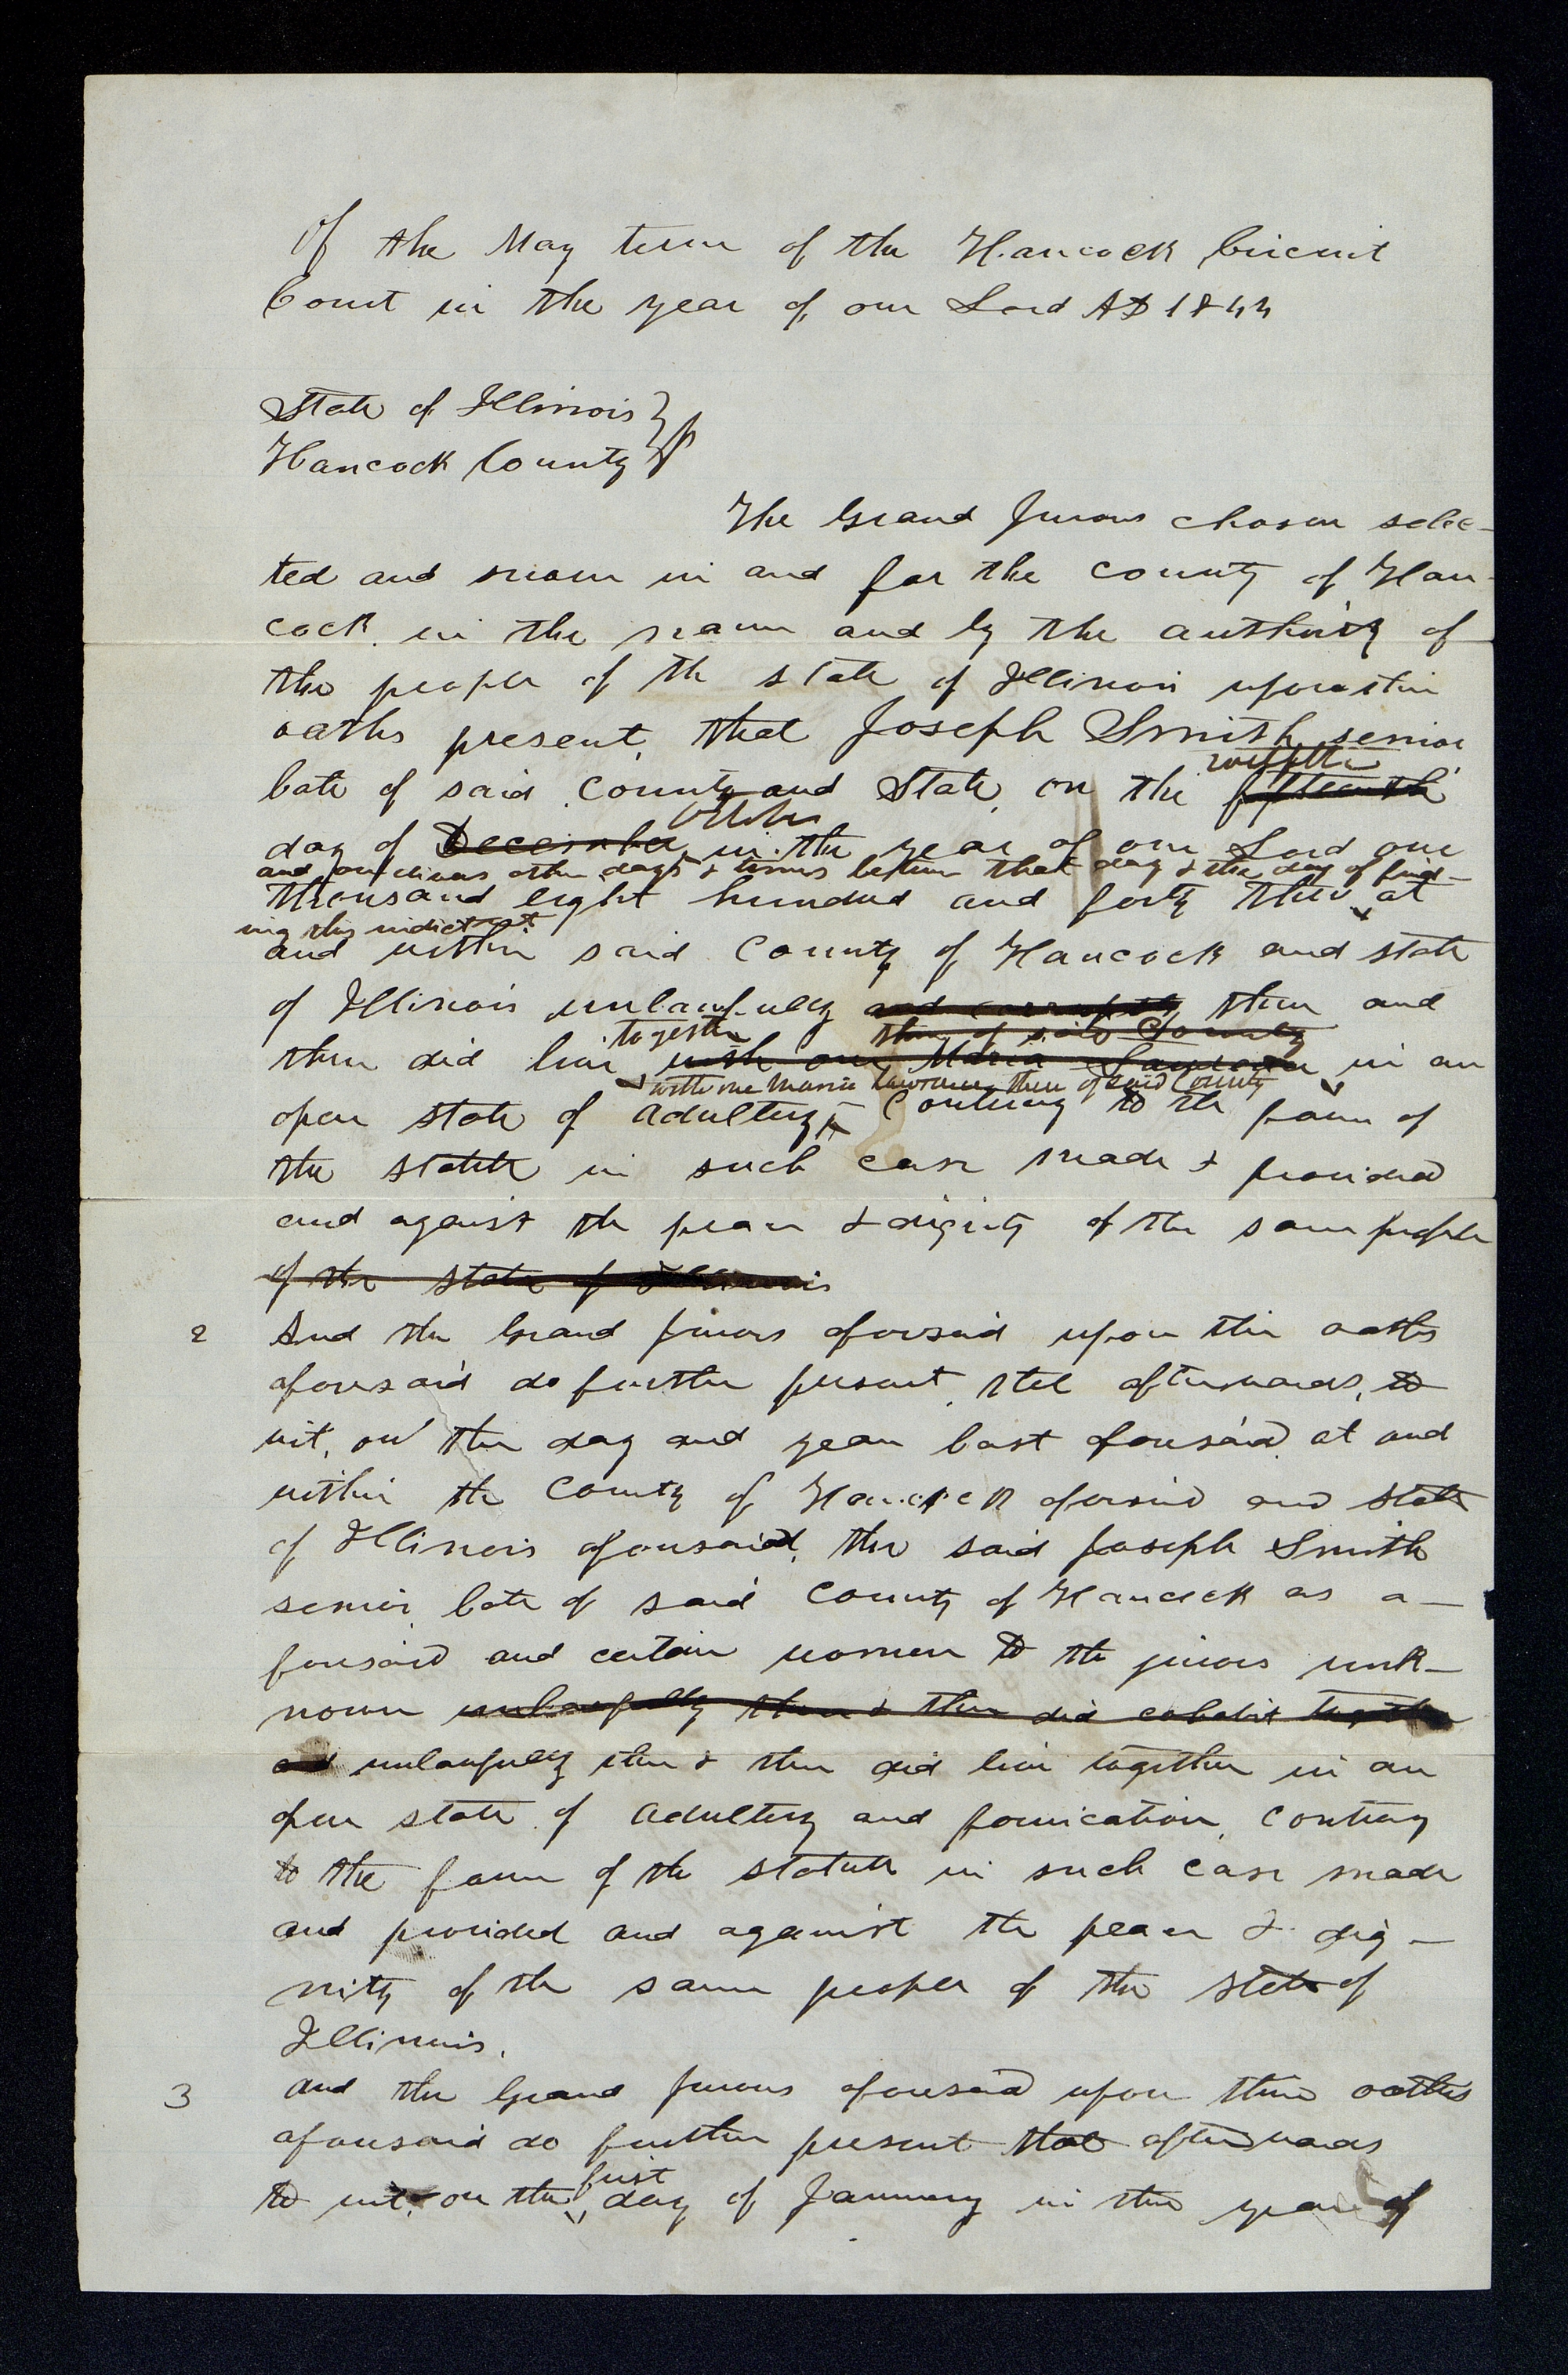 Of the May term of the Hancock Circuit
Court in the year of our Lord AD 1844
State of Illinois }
Hancock County } ss
The Grand Jurors chosen selec-
ted and sworn in and for the county of Han-
cock in the name and by the authority of
the people of the state of Illinois upon their
oaths present, that Joseph Smith senior
twelfth
late of said County and State, on the fifteenth
October
day of December in the year of our Lord one
and on divers other days & times between that day & the day of find-
thousand eight hundred and forty three at
ing this indictment
and within said County of Hancock and state
of Illinois unlawfully and corruptly then and
together then of said County
there did live with one Maria Lawrence in an
with one Maria Lawrence then of said County
open state of adultery, Contrary to the form of
the statute in such case made & provided
and against the peace & dignity of the same people
of the State of Illinois
2 And the Grand Jurors aforesaid upon their oaths
aforesaid do further present, that afterwards, to
wit, on the day and year last aforesaid at and
within the County of Hancock aforesaid and state
of Illinois aforesaid, the said Joseph Smith
senior late of said County of Hancock as a-
foresaid and certain women to the jurors unk-
nown unlawfully then & there did cohabit together
and unlawfully then & there did live together in an
open state of adultery and fornication, contrary
to the form of the statute in such case made
and provided and against the peace & dig-
nity of the same people of the state of
Illinois.
3 And the Grand Jurors aforesaid upon their oaths
aforesaid do further present that afterwards
first
to wit, on the day of January in the year of